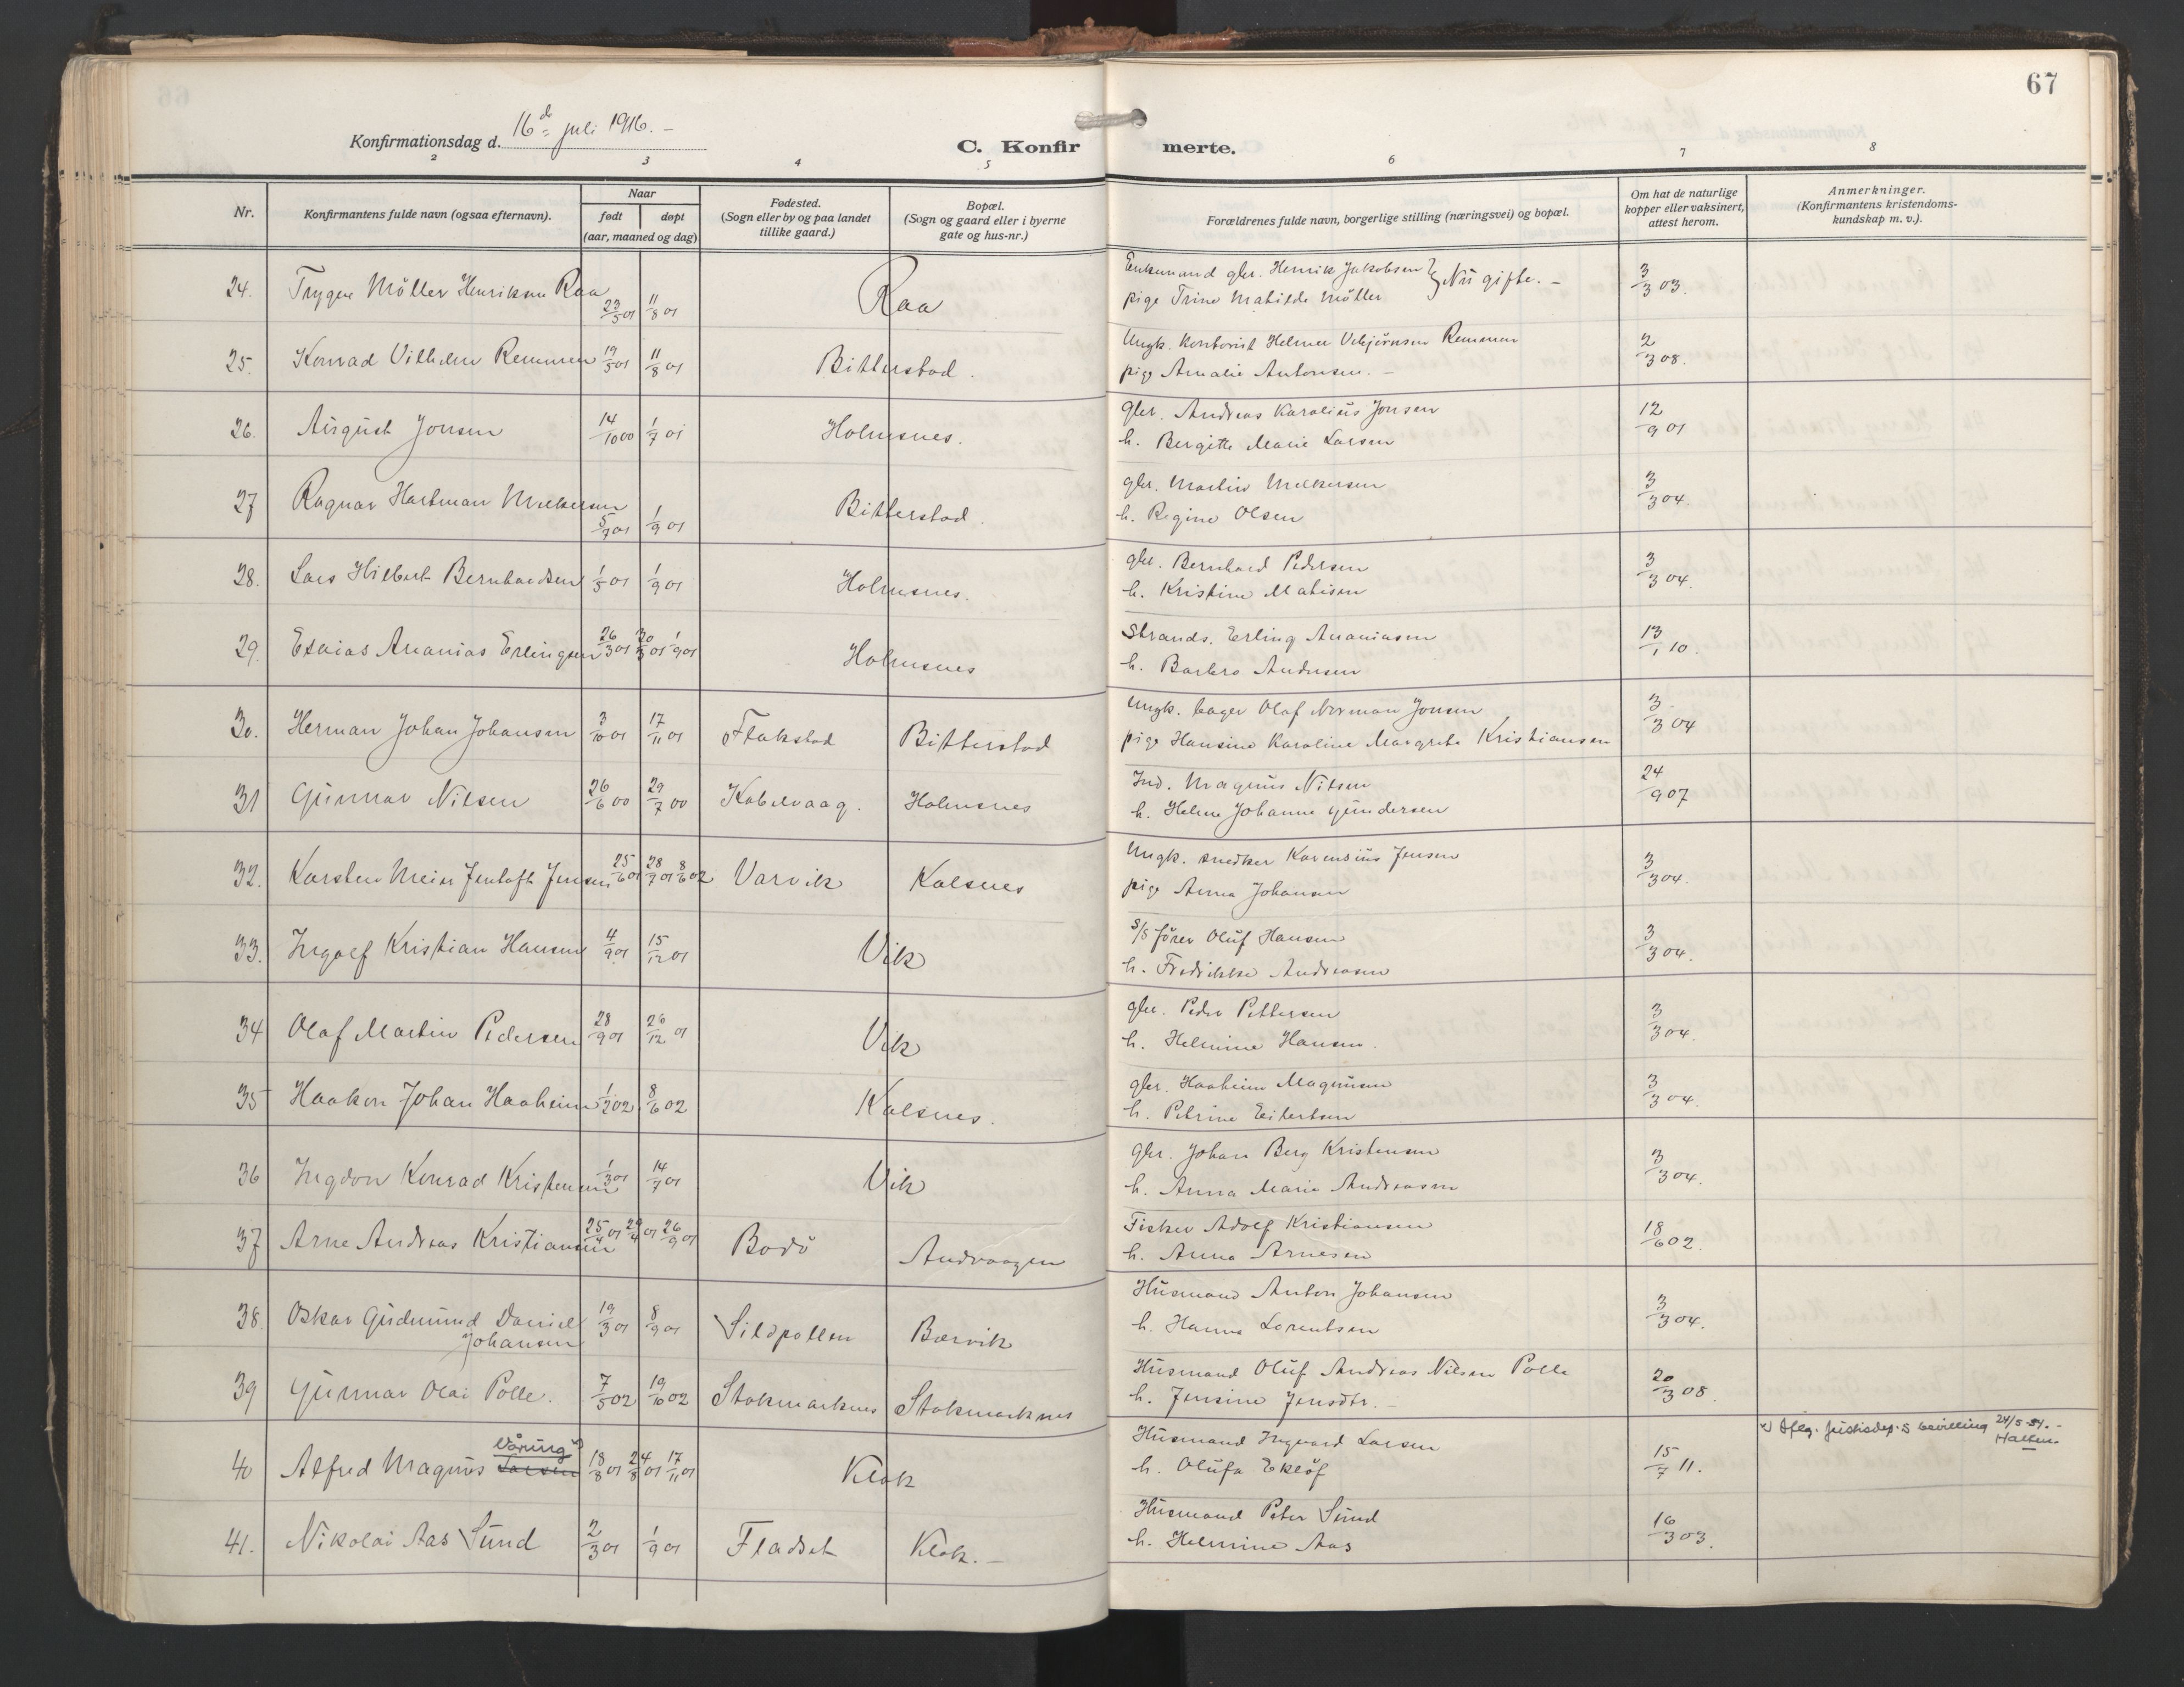 67
Konfirmationsdag d. 16de juli 1916. –
C. Konfirmerte.
2 3 4 5 6 7 8
Nr.
Konfirmantens fulde navn (ogsaa efternavn).
Naar
født døpt
(aar, maaned og dag)
Fødested.
(Sogn eller by og paa landet
tillike gaard.)
Bopæl.
(Sogn og gaard eller i byerne
gate og hus-nr.)
Forældrenes fulde navn, borgerlige stilling (næringsvei) og bopæl.
Om hat de naturlige
kopper eller vaksinert,
attest herom.
Anmerkninger.
(Konfirmantens kristendoms-
kundskap m. v.).
24. Trygve Möller Henriksen Raa 23/5 01 11/8 01 Raa Enkemand gbr. Henrik Jakobsen } Nu gifte. – 3/3 03.
pige Trine Matilde Möller
25. Konrad Vilhelm Remmen 19/5 01 11/8 01 Bitterstad. Ungk. kontorist Helmer Vebjörnsen Remmen 2/3 08.
pige Amalie Antonsen. –
26. August Jonsen 14/10 00 1/7 01 Holmsnes. gbr. Andreas Karolius Jonsen 12/9 01
h. Bergitte Marie Larsen
27 Ragnar Hartman Melkersen 5/7 01 1/9 01 Bitterstad. gbr. Martin Melkersen 3/3 04.
h. Regine Olsen
28. Lars Hilbert Bernhardsen 1/5 01 1/9 01 Holmsnes. gbr. Bernhard Pedersen 3/3 04.
h. Kristine Matisen
29. Esaias Ananias Erlingsen 26/3 01 30/3 01 1/9 01 Holmsnes Strands. Erling Ananiasen 13/1 10.
h. Barbro Andersen
30. Herman Johan Johansen 3/10 01 17/11 01 Flakstad Bitterstad Ungk. bager Olaf Norman Jonsen 3/3 04
pige Hansine Karoline Margrete Kristiansen
31 Gunnar Nilsen 26/6 00 29/7 00 Kabelvaag. Holmsnes Ind. Magnus Nilsen 24/9 07
h. Helene Johanne Gundersen
32. Karsten Meier Jentoft Jensen 25/6 01 28/7 01 8/6 02 Varvik Kalsnes Ungk. snedker Korensius Jensen 3/3 04.
pige Anna Johansen
33. Ingolf Kristian Hansen 4/9 01 15/12 01 Vik S/S förer Oluf Hansen 3/3 04.
h. Fredrikke Andreasen
34 Olaf Martin Pedersen 28/9 01 26/12 01 Vik gbr. Peder Pettersen 3/3 04.
h. Helmine Hansen.
35 Haakon Johan Haaheim 1/2 02 8/6 02 Kalsnes. gbr. Haaheim Magnusen 3/3 04.
h. Petrine Eilertsen
36 Ingdon Konrad Kristensen 1/3 01 14/7 01 Vik gbr. Johan Berg Kristensen 3/3 04.
h. Anna Marie Andreasen
37 Arne Andreas Kristiansen 25/4 01 29/4 01 26/9 01 Bodö Andvaagen Fisker Adolf Kristiansen 18/6 02.
h. Anna Arnesen
38. Oskar Gudmund Daniel 19/3 01 8/9 01 Sildpollen Børvik Husmand Anton Johansen 3/3 04.
Johansen h. Hanna Lorentsen
39 Gunnar Olai Polle. 7/5 02 19/10 02 Stokmarknes Stokmarknes Husmand Oluf Andreas Nilsen Polle 20/3 08.
h. Jensine Jensdtr. –
40 Alfred Magnus Larsen Våring x) 18/8 01 24/8 01 17/11 01 Klok Husmand Ingvard Larsen 15/7 11. x) Iflg. justisdep.s bevilling 24/5-34. –
h. Olufa Eklöf
41. Nikolai Aas Sund 2/3 01 1/9 01 Fladset Klok. – Husmand Peter Sund 16/3 03.
h. Helmine Aas